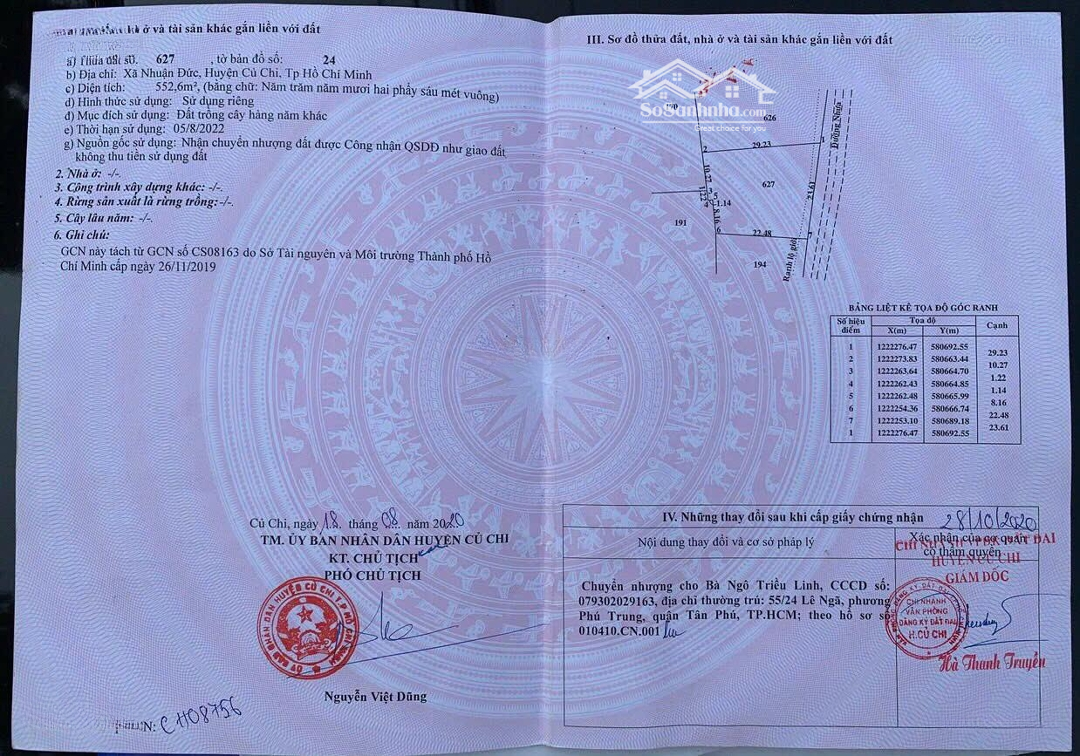 nhà ở và tài sản khác gắn liền với đất
a) Thửa đất số: 627 , tờ bản đồ số: 24
b) Địa chỉ: Xã Nhuận Đức, Huyện Củ Chi, Tp Hồ Chí Minh
c) Diện tích: 552,6m², (bằng chữ: Năm trăm năm mươi hai phẩy sáu mét vuông)
d) Hình thức sử dụng: Sử dụng riêng
đ) Mục đích sử dụng: Đất trồng cây hàng năm khác
e) Thời hạn sử dụng: 05/8/2022
g) Nguồn gốc sử dụng: Nhận chuyển nhượng đất được Công nhận QSDĐ như giao đất
không thu tiền sử dụng đất
2. Nhà ở: -/-
3. Công trình xây dựng khác: -/-.
4. Rừng sản xuất là rừng trồng:-/-.
5. Cây lâu năm: -/-
6. Ghi chú:
GCN này tách từ GCN số CS08163 do Sở Tài nguyên và Môi trường Thành phố Hồ
Chí Minh cấp ngày 26/11/2019
Củ Chi, ngày 18 tháng 08 năm 2020
TM. ỦY BAN NHÂN DÂN HUYỆN CỦ CHI
KT. CHỦ TỊCH
PHÓ CHỦ TỊCH
ỦY BAN NHÂN DÂN HUYỆN CỦ CHI T.P HỒ CHÍ MINH
Nguyễn Việt Dũng
N: CH08756
III. Sơ đồ thửa đất, nhà ở và tài sản khác gắn liền với đất
SoSanhnha.com
Great choice for you
626
Đường Nhựa
1
29.23
2
10.27
627
23.61
3
1.22
5
4
1.14
8.16
191
6
22.48
7
194
Ranh lộ giới
BẢNG LIỆT KÊ TỌA ĐỘ GÓC RANH
Số hiệu điểm Tọa độ Cạnh
X(m) Y(m)
1 1222276.47 580692.55
29.23
2 1222273.83 580663.44
10.27
3 1222263.64 580664.70
1.22
4 1222262.43 580664.85
1.14
5 1222262.48 580665.99
8.16
6 1222254.36 580666.74
22.48
7 1222253.10 580689.18
23.61
1 1222276.47 580692.55
IV. Những thay đổi sau khi cấp giấy chứng nhận
28/10/2020
Nội dung thay đổi và cơ sở pháp lý
Xác nhận của cơ quan
có thẩm quyền
HUYỆN CỦ CHI
GIÁM ĐỐC
Chuyển nhượng cho Bà Ngô Triều Linh, CCCD số:
079302029163, địa chỉ thường trú: 55/24 Lê Ngã, phương
Phú Trung, quận Tân Phú, TP.HCM; theo hồ sơ số
010410.CN.001
CHI NHÁNH
VĂN PHÒNG
ĐĂNG KÝ ĐẤT ĐAI
H.CỦ CHI
Hà Thanh Truyền